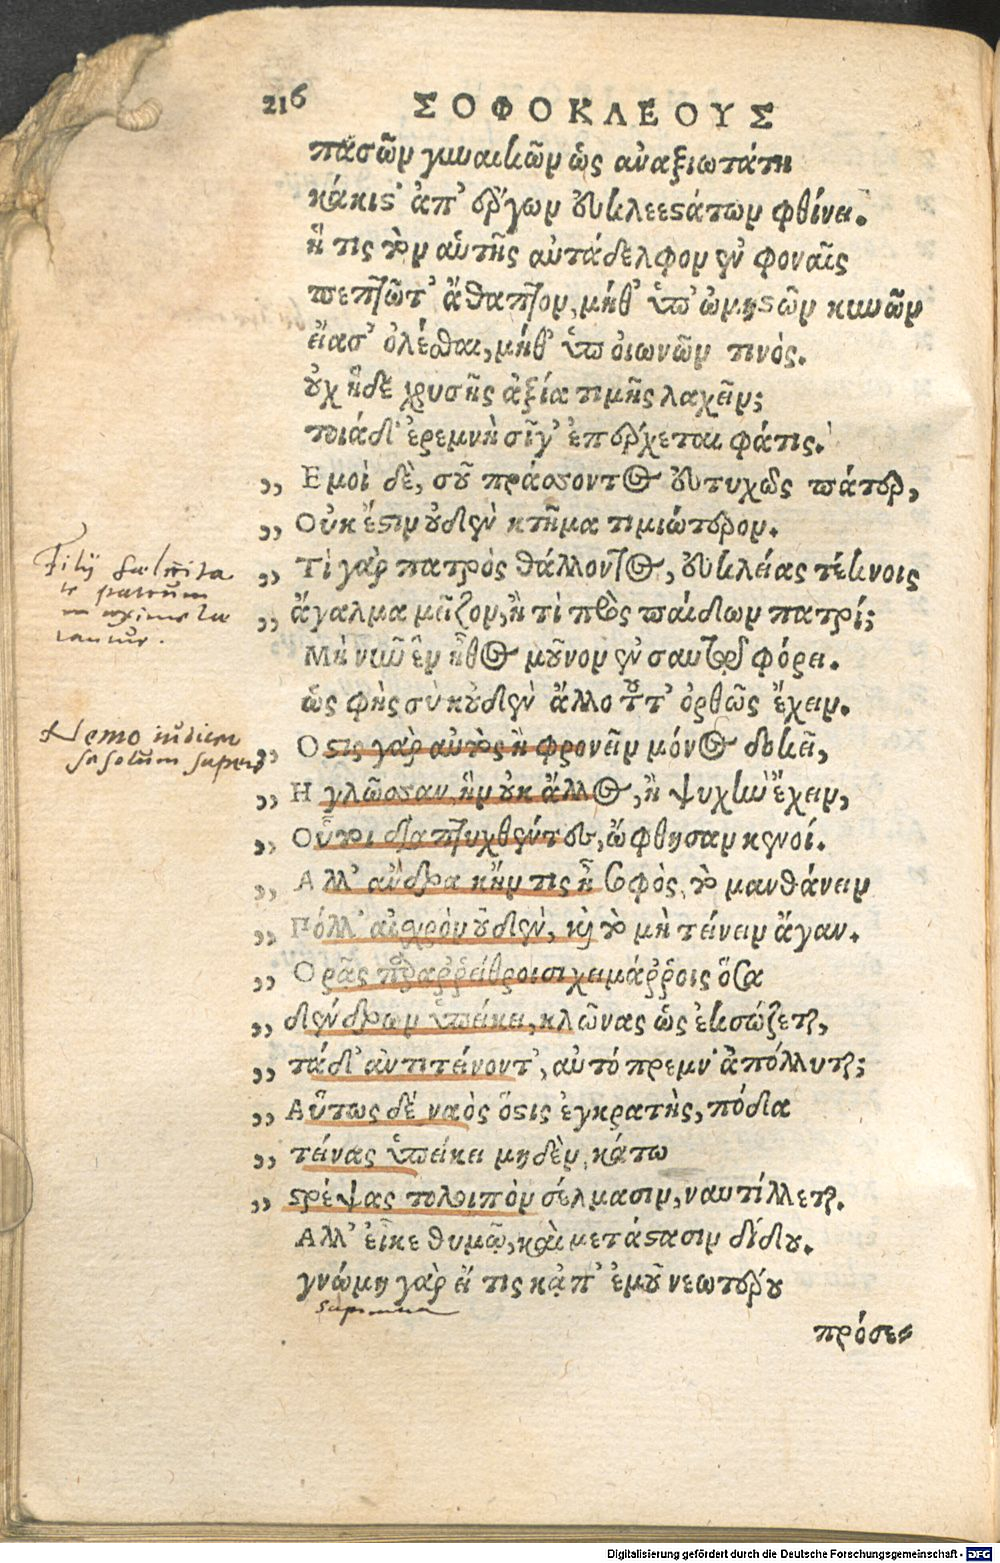 216 ΣΟΦΟΚΛΕΟΥΣ
πασῶν γυναικῶν ὡς ἀναξιωτάτη
κάκιστ' ἀπ' ἔργων εὐκλεεστάτων φθίνει.
ἥ τις τὸν αὑτῆς αὐτάδελφον ἐν φοναῖς
πεπτῶτ' ἄθαπτον, μήθ' ὑπ' ὠμηστῶν κυνῶν
εἴασ' ὀλέσθαι, μήθ' ὑπ' οἰωνῶν τινὸς.
οὐχ ἥδε χρυσῆς ἀξία τιμῆς λαχεῖν;
τοιάδ' ἐρεμνὴ σῖγ' ἐπέρχεται φάτις.
,, Εμοὶ δὲ, σοῦ πράσσοντος εὐτυχῶς πάτερ,
,, Οὐκ ἔστιν οὐδὲν κτῆμα τιμιώτερον.
,, Τί γὰρ πατρὸς θάλλοντος, εὐκλείας τέκνοις
,, ἄγαλμα μεῖζον, ἢ τί πρὸς παίδων πατρί;
Μή νιῦ ἓν ἦθος μοῦνον ἐν σαυτῷ φόρει.
ὡς φῂς σὺ κοὐδὲν ἄλλο τοῦτ' ὀρθῶς ἔχειν.
,, Οστις γὰρ αὐτὸς ἢ φρονεῖν μόνος δοκεῖ,
,, Η γλῶσσαν, ἣν οὐκ ἄλλος, ἢ ψυχὴν ἔχειν,
,, Οὗτοι διαπτυχθέντες, ὤφθησαν κενοί.
,, Αλλ' ἄνδρα κἤν τις ᾖ σοφὸς, τὸ μανθάνειν
,, Πόλλ' αἰσχρὸν οὐδὲν, καὶ τὸ μὴ τείνειν ἄγαν.
,, Ορᾷς παρὰ ῥείθροισι χειμάῤῥοις ὅσα
,, δένδρων ὑπείκει, κλῶνας ὡς ἐκσώζεται,
,, τὰ δ' ἀντιτείνοντ', αὐτόπρεμν' ἀπόλλυται;
,, Αὕτως δέ ναὸς ὅστις ἐγκρατὴς, πόδα
,, τείνας ὑπείκει μηδὲν, κάτω
,, στρέψας τολοιπὸν σέλμασιν, ναυτίλλεται.
Αλλ' εἶκε θυμῷ, καὶ μετάστασιν δίδου.
γνώμη γὰρ εἴ τις κᾀπ' ἐμοῦ νεωτέρου
πρόσε-
Filij
patrum
maxime
Nemo iudicet
se solum sapere
Digitalisierung gefördert durch die Deutsche Forschungsgemeinschaft - DFG